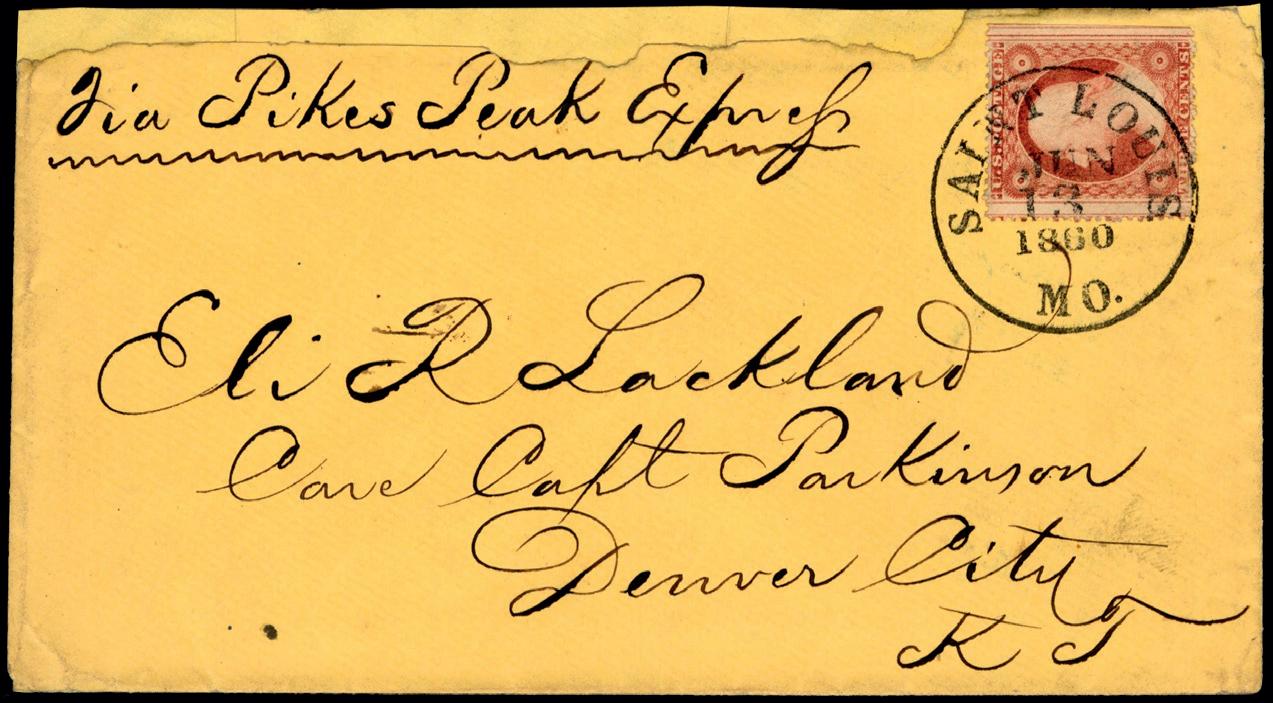 Via Pikes Peak Express
U.S. POSTAGE
THREE CENTS
SAINT LOUIS
JUN
13
1860
MO.
Eli R Lackland
Care Capt Parkinson
Denver City
K T